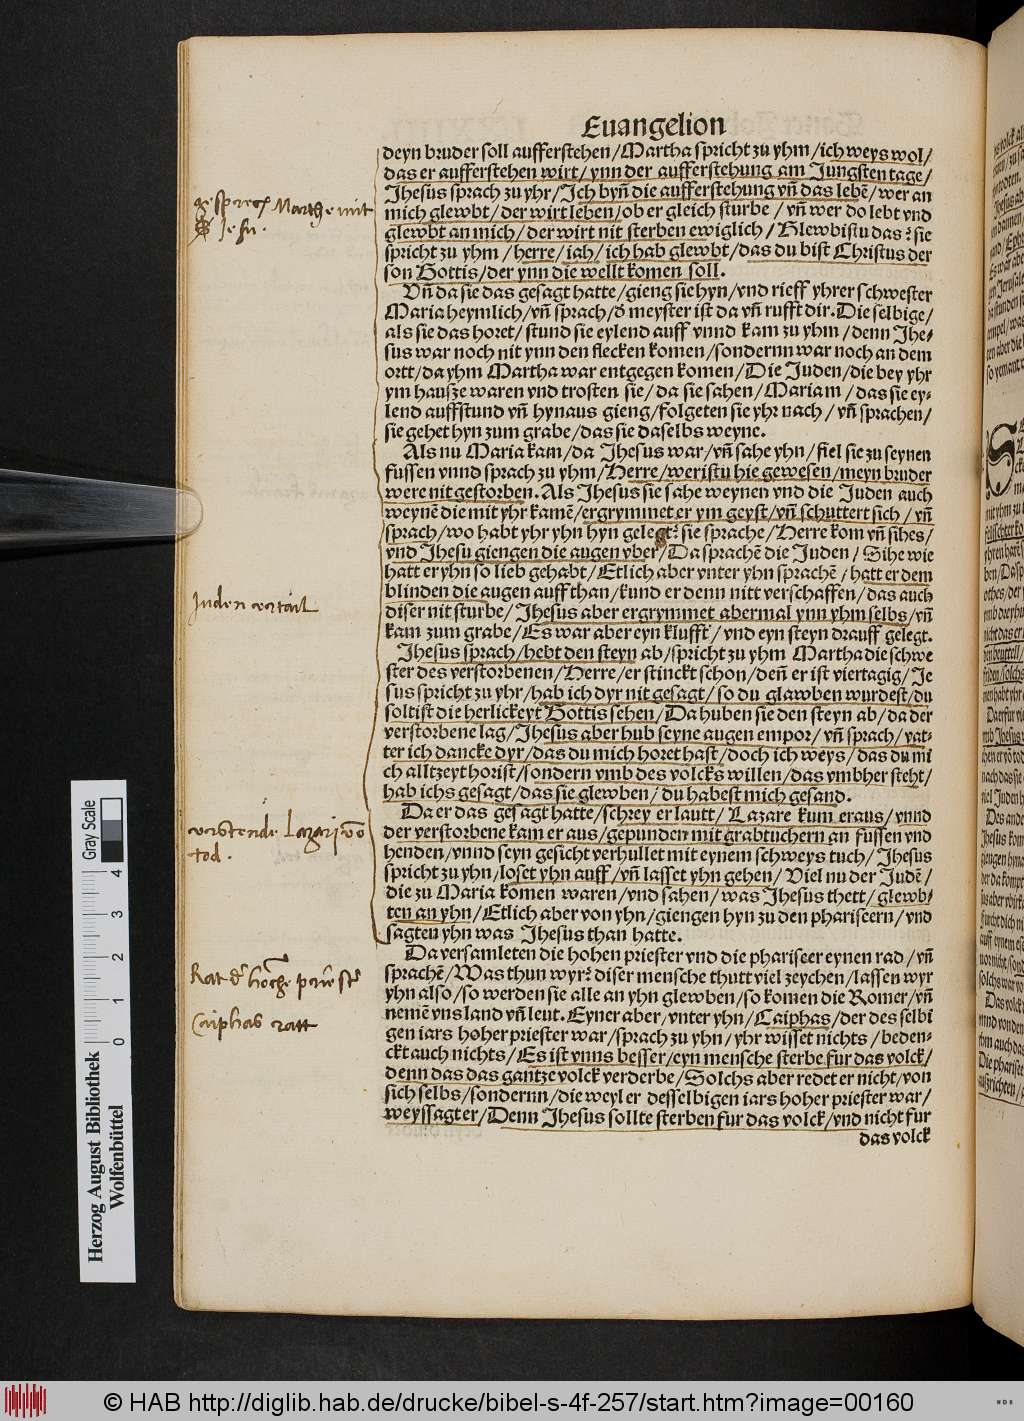 Euangelion
deyn bruder soll aufferstehen/Martha spricht zu yhm/ich weys wol/
das er aufferstehen wirt/ynn der aufferstehung am Jungsten tage/
Jhesus sprach zu yhr/Ich byñ die aufferstehung vñ das lebẽ/wer an
mich glewbt/der wirt leben/ob er gleich sturbe/vñ wer do lebt vnd
glewbt an mich/der wirt nit sterben ewiglich/Glewbistu das? sie
spricht zu yhm/herre/iah/ich hab glewbt/das du bist Christus der
son Gottis/der ynn die wellt komen soll.
Vñ da sie das gesagt hatte/gieng sie hyn/vnd rieff yhrer schwester
Maria heymlich/vñ sprach/d meyster ist da vñ rufft dir. Die selbige/
als sie das horet/stund sie eylend auff vnnd kam zu yhm/denn Jhe-
sus war noch nit ynn den flecken komen/sondernn war noch an dem
ortt/da yhm Martha war entgegen komen/Die Juden/die bey yhr
ym hausze waren vnd trosten sie/da sie sahen/Mariam/das sie ey-
lend auffstund vñ hynaus gieng/folgeten sie yhr nach/vñ sprachen/
sie gehet hyn zum grabe/das sie daselbs weyne.
Als nu Maria kam/da Jhesus war/vñ sahe yhn/fiel sie zu seynen
fussen vnnd sprach zu yhm/Herre/weristu hie gewesen/meyn bruder
were nit gestorben. Als Jhesus sie sahe weynen vnd die Juden auch
weynẽ die mit yhr kamẽ/ergrymmet er ym geyst/vñ schuttert sich/vñ
sprach/wo habt yhr yhn hyn gelegt? sie sprache/Herre kom vñ sihes/
vnd Jhesu giengen die augen vber/Da sprachẽ die Juden/Sihe wie
hatt er yhn so lieb gehabt/Etlich aber vnter yhn sprachẽ/hatt er dem
blinden die augen auff than/kund er denn nitt verschaffen/das auch
diser nit sturbe/Jhesus aber ergrymmet abermal ynn yhm selbs/vñ
kam zum grabe/Es war aber eyn klufft/vnd eyn steyn drauff gelegt.
Jhesus sprach/hebt den steyn ab/spricht zu yhm Martha die schwe
ster des verstorbenen/Herre/er stinckt schon/deñ er ist viertagig/Je
sus spricht zu yhr/hab ich dyr nit gesagt/so du glawben wurdest/du
soltist die herlickeyt Gottis sehen/Da huben sie den steyn ab/da der
verstorbene lag/Jhesus aber hub seyne augen empor/vñ sprach/vat-
ter ich dancke dyr/das du mich horet hast/doch ich weys/das du mi
ch alltzeyt horist/sondern vmb des volcks willen/das vmbher steht/
hab ichs gesagt/das sie glewben/du habest mich gesand.
Da er das gesagt hatte/schrey er lautt/Lazare kum eraus/vnnd
der verstorbene kam er aus/gepunden mit grabtuchern an fussen vnd
henden/vnnd seyn gesicht verhullet mit eynem schweys tuch/Jhesus
spricht zu yhn/loset yhn auff/vñ lasset yhn gehen/Viel nu der Judẽ/
die zu Maria komen waren/vnd sahen/was Jhesus thett/glewb-
ten an yhn/Etlich aber von yhn/giengen hyn zu den phariseern/vnd
sagten yhn was Jhesus than hatte.
Da versamleten die hohen priester vnd die phariseer eynen rad/vñ
sprachẽ/Was thun wyr? diser mensche thutt viel zeychen/lassen wyr
yhn also/so werden sie alle an yhn glewben/so komen die Romer/vñ
nemẽ vns land vñ leut. Eyner aber/vnter yhn/Caiphas/der des selbi
gen iars hoher priester war/sprach zu yhn/yhr wisset nichts/beden-
ckt auch nichts/Es ist vnns besser/eyn mensche sterbe fur das volck/
denn das das gantze volck verderbe/Solchs aber redet er nicht/von
sich selbs/sondernn/die weyl er desselbigen iars hoher priester war/
weyssagt er/Denn Jhesus sollte sterben fur das volck/vnd nicht fur
das volck
gesprech Marthe mit
Jesu.
Juden vrtail
verstende Lazari võ
tod.
Caiphas ratt
Gray Scale
0 1 2 3 4
Herzog August Bibliothek
Wolfenbüttel
© HAB http://diglib.hab.de/drucke/bibel-s-4f-257/start.htm?image=00160